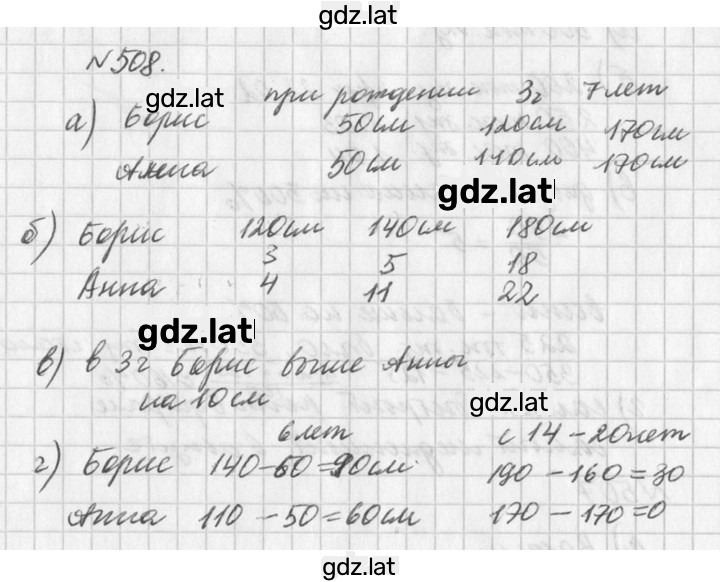 gdz.lat
№508.
gdz.lat
при рождении 3г 7 лет
а) Борис 50см 120см 170см
Анна 50см 110см 170см
gdz.lat
б) Борис 120см 140см 180см
3 5 18
Анна 4 11 22
gdz.lat
в) в 3г Борис выше Анны
на 10см
gdz.lat
6 лет с 14 – 20 лет
г) Борис 140–50=90см 190 – 160 = 30
Анна 110 – 50 = 60см 170 – 170 = 0
gdz.lat